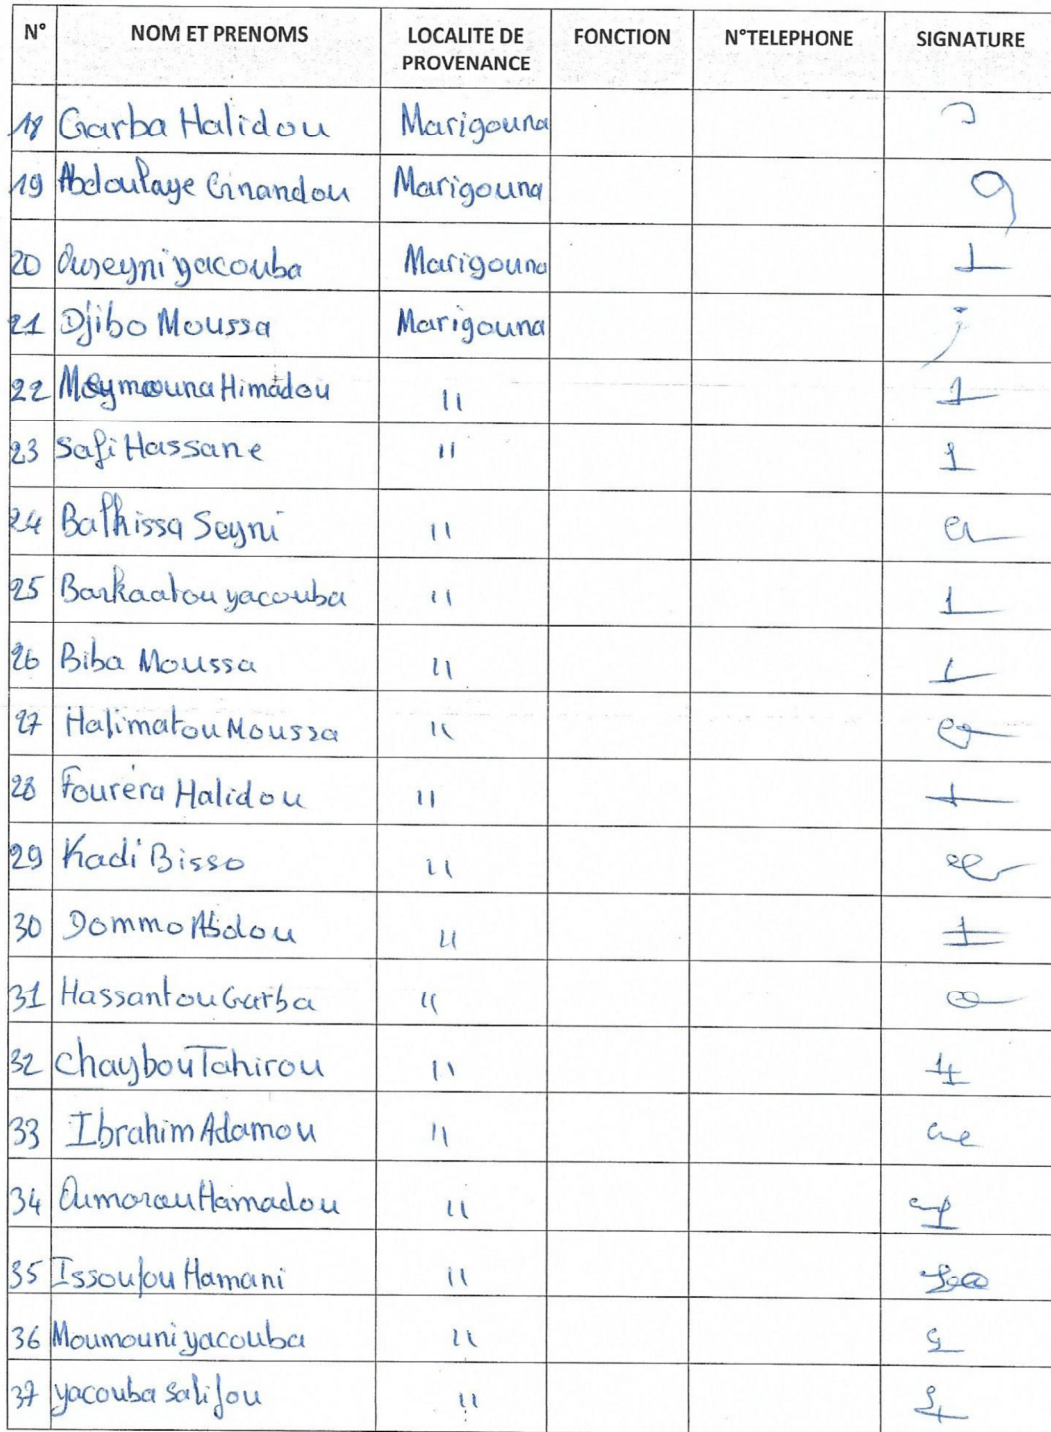 N° NOM ET PRENOMS LOCALITE DE PROVENANCE FONCTION N°TELEPHONE SIGNATURE
18 Garba Halidou Marigouna
19 Abdoulaye Ginandou Marigouna
20 Ouseyni yacouba Marigouna
21 Djibo Moussa Marigouna
22 Meymouna Himadou 11
23 Safi Hassane 11
24 Balkissa Seyni 11
25 Barkaatou yacouba 11
26 Biba Moussa 11
27 Halimatou Moussa 11
28 Fouréra Halidou 11
29 Kadi Bisso 11
30 Dommo Abdou 11
31 Hassantou Garba 11
32 Chaybou Tahirou 11
33 Ibrahim Adamou 11
34 Oumorou Hamadou 11
35 Issoufou Hamani 11
36 Moumouni yacouba 11
37 yacouba Salifou 11